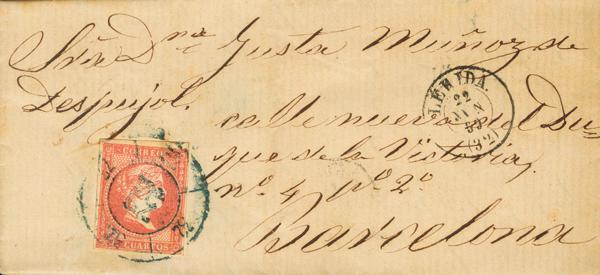 Sra. Dna. Justa Muñoz de
Despujol. calle nueva del Du-
que de la Victoria,
nº 4 pº 2º
Barcelona
LÉRIDA.
22
JUN
59
(32)
CORREOS
CUARTOS